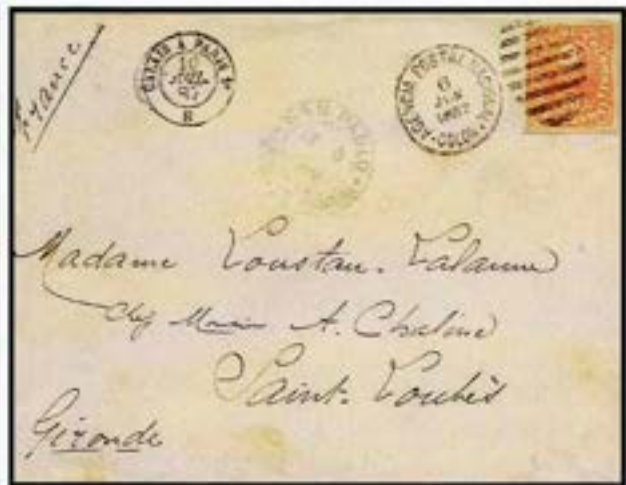 France
CALAIS A PARIS
10
JUIL
87
AGENCIA POSTAL NACIONAL
COLON
PABLO
Madame Loustau. Lalanne
chez A. Chaline
Saint. Loubès
Gironde